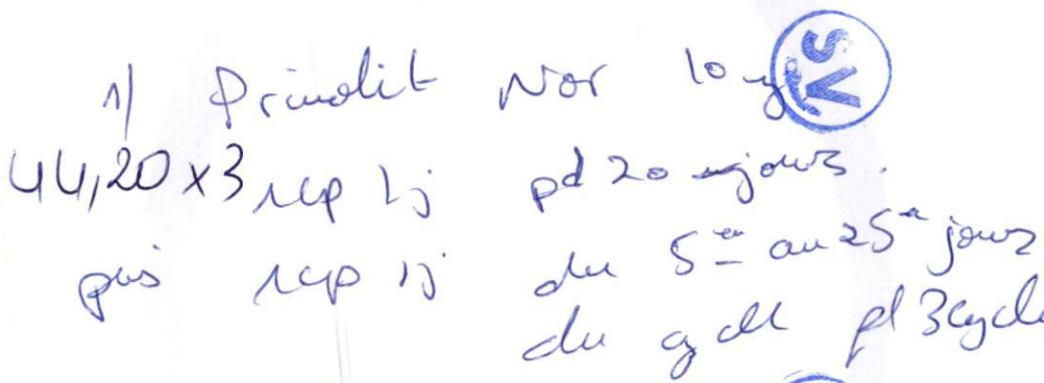 1/ Primolut Nor 10 mg
SV
44,20 x3 1cp 1j pd 20 jours.
puis 1cp 1j du 5e au 25e jours
du cycle pd 3 cycle